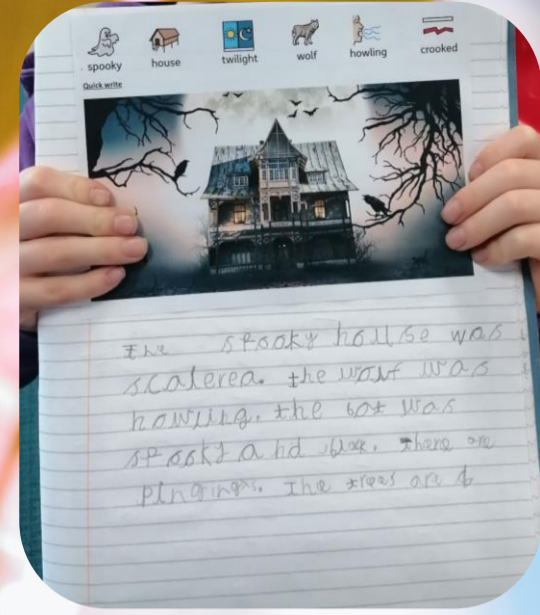 spooky house twilight wolf howling crooked
Quick write
The spooky house was
scaterea. the wolf was
howling. the bat was
spooky and black. There are
pingings. The trees are